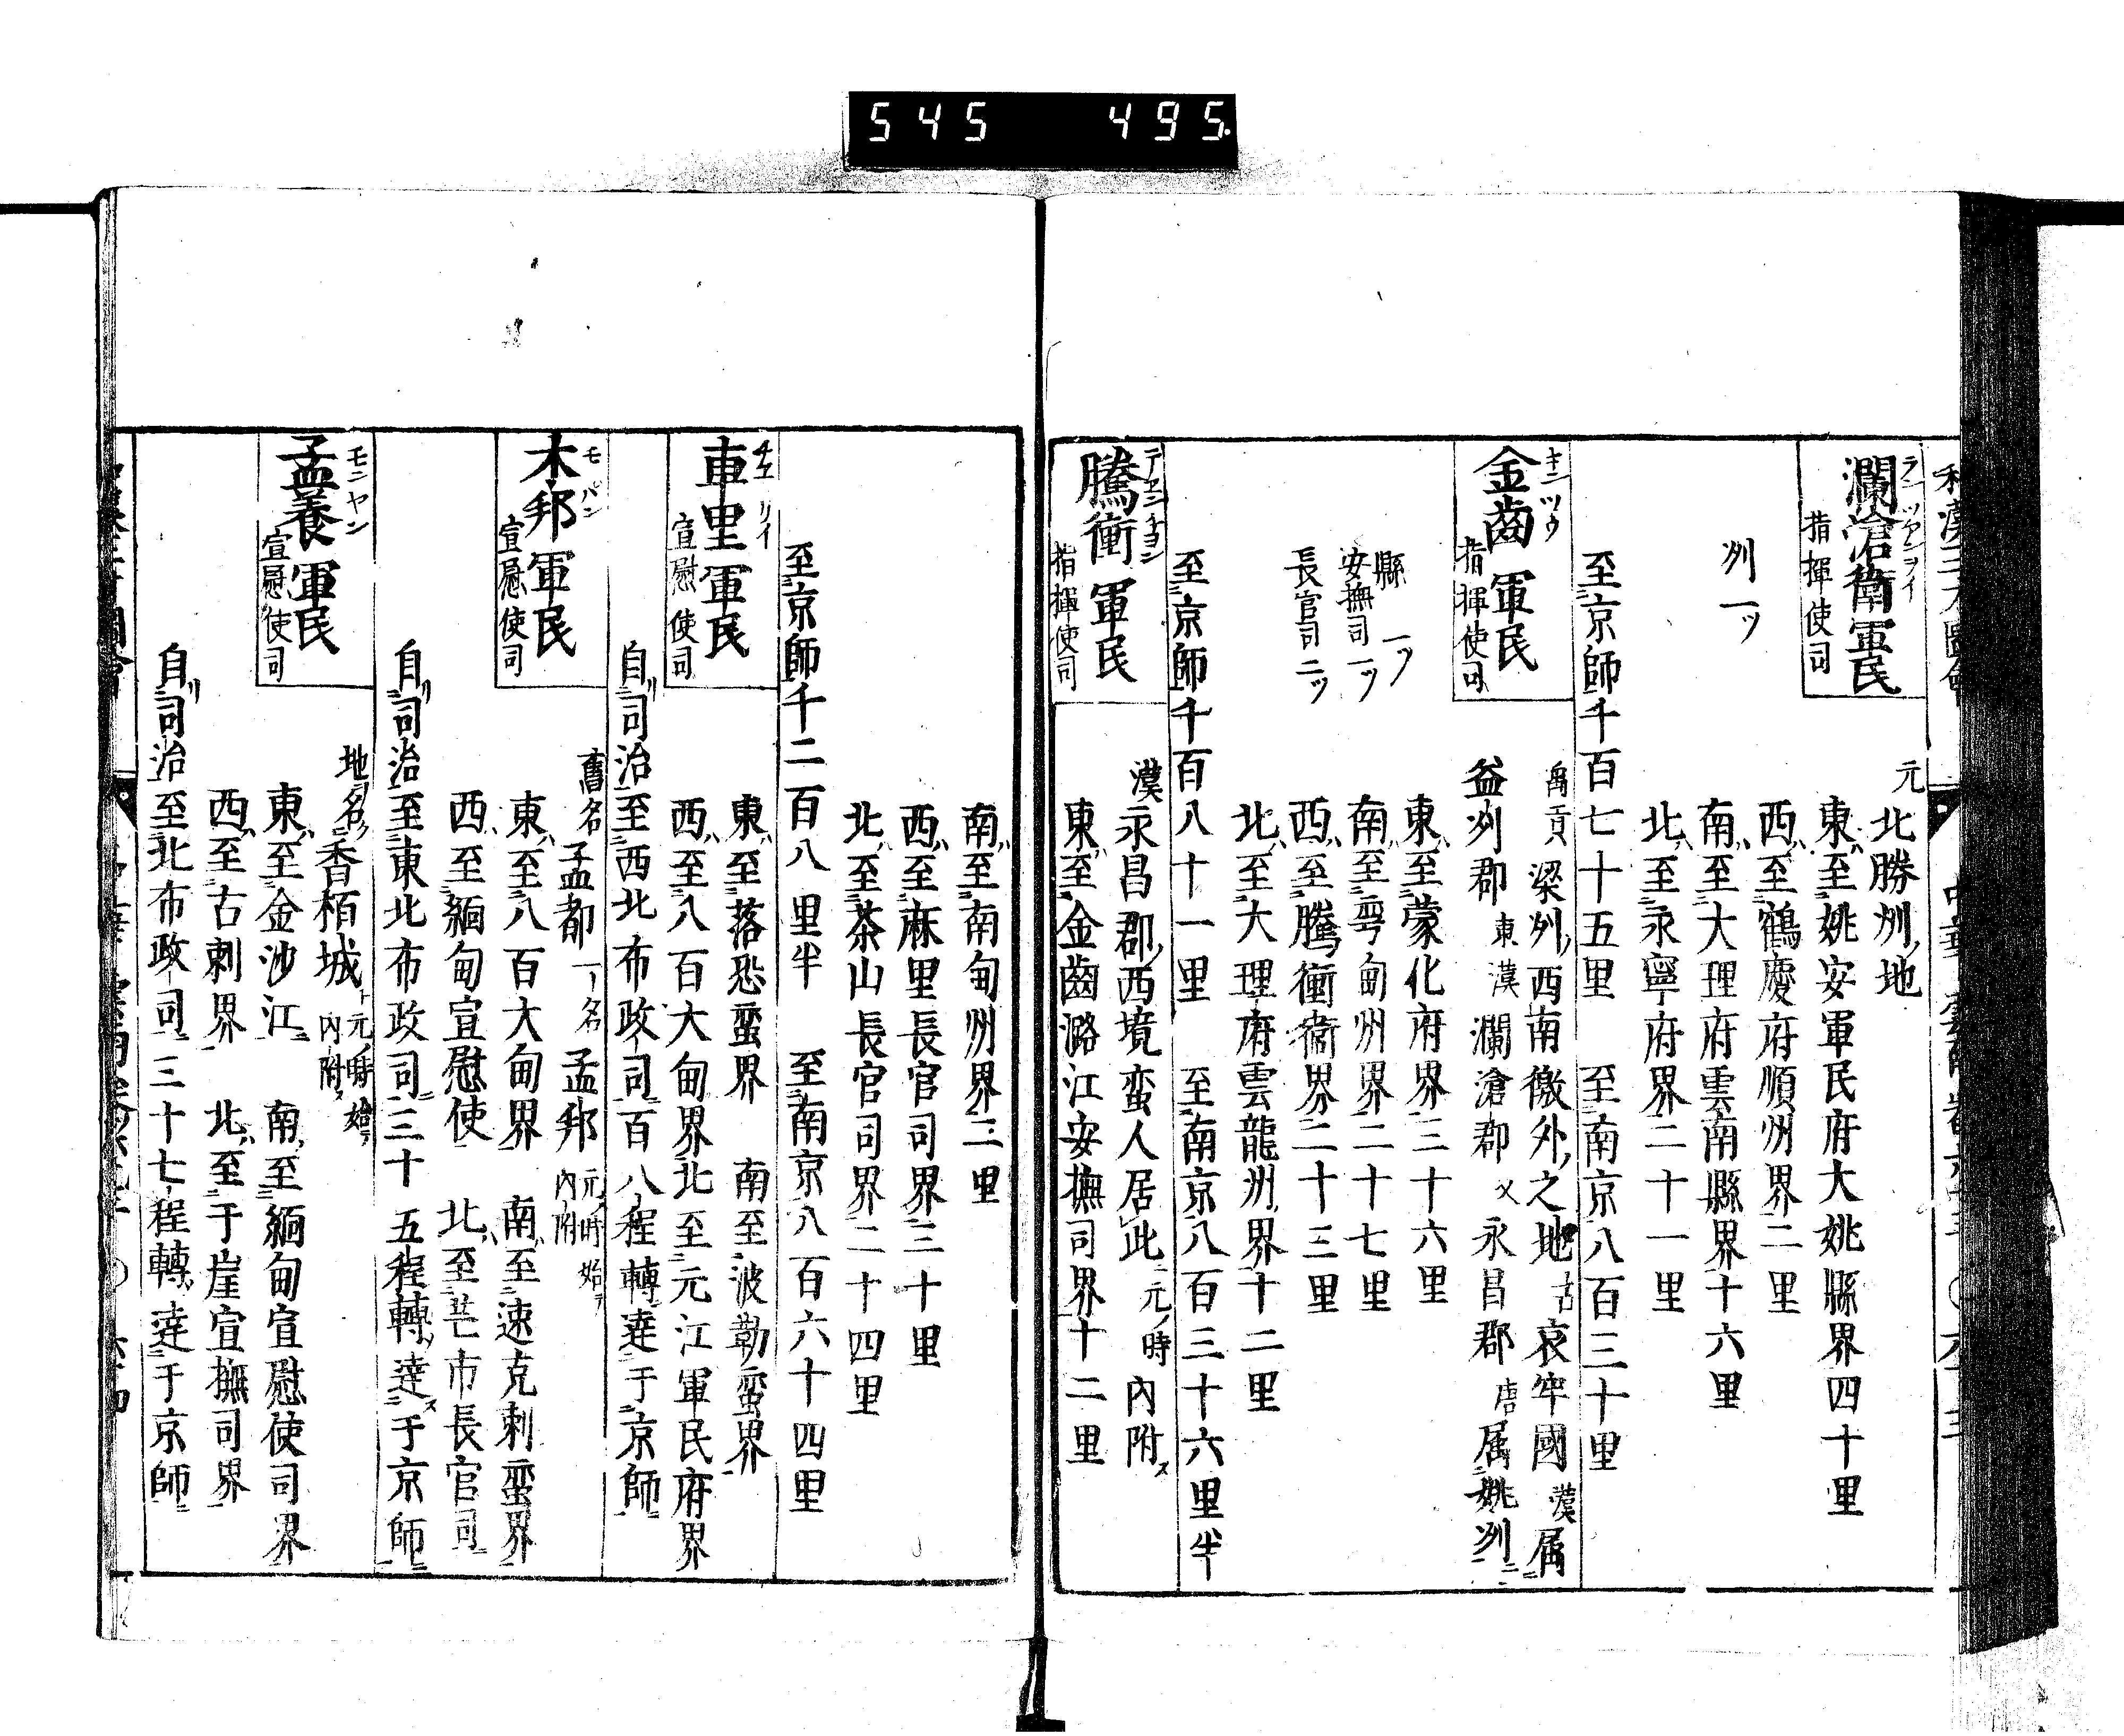 545 495
瀾滄衛軍民
ランツァンヲイ
指揮使司
元北勝州ノ地
東ハ至姚安軍民府大姚縣界四十里
西ハ至鶴慶府順州界二里
南ハ至大理府雲南縣界十六里
北ハ至永寧府界二十一里
州一ツ
至京師千百七十五里 至南京八百三十里
金齒軍民
キンツウ
指揮使司
禹貢梁州ノ西南徼外ノ之地古哀牢國漢屬
益州郡東漢瀾滄郡又永昌郡唐屬姚州ニ
東ハ至蒙化府界三十六里
南ハ至雩甸州界二十七里
西ハ至騰衝衞界二十三里
北ハ至大理府雲龍州界十二里
縣一ツ
安撫司一ツ
長官司二ツ
至京師千百八十一里 至南京八百三十六里半
騰衝軍民
指揮使司
漢永昌郡ノ西境蛮人居此元ノ時內附ス
東ハ至金齒潞江安撫司界十二里
南ハ至南甸州界二里
西ハ至麻里長官司界三十里
北ハ至茶山長官司界二十四里
至京師千二百八里半 至南京八百六十四里
車里軍民
チエリイ
宣慰使司
東ハ至落恐蛮界 南至波勒蛮界
西ハ至八百大甸界北至元江軍民府界
自リ司治至西北布政司百八程轉達于京師
木邦軍民
モパン
宣慰使司
舊名孟都一ノ名孟邦元ノ時始テ內附
東ハ至八百大甸界 南ハ至速克剌蛮界
西ハ至緬甸宣慰使 北ハ至芒市長官司
自リ司治至東北布政司三十五程轉シ達ス于京師
孟養軍民
モニヤン
宣慰使司
地ノ名ク香栢城ト元ノ時始テ內附
東ハ至金沙江 南ハ至緬甸宣慰使司界
西ハ至古剌界 北ハ至于崖宣撫司界
自リ司治至北布政司三十七程轉達于京師